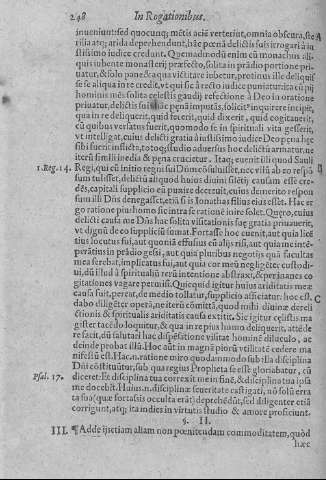 248 In Rogationibus.
inueniunt: sed quocunq; métis acié verterint, omnia obscura, ste A
rilia atq; arida deprehendunt, hác poená delictis suis irrogari à iu
stissimo iudice credunt. Quemadmodú enim cú monachus ali-
quis iubente monasterij præfecto, solita in prádio portione pri-
uatur, & solo pane & aqua victitare iubetur, protinus ille deliquis
se se aliqua in re credit, vt qui sic à recto iudice puniatur: ita cú pij
hominis més solita cælestis gaudij refectione à Deo in oratione
priuatur, delictis suis hác pená imputás, solicité inquirere incipit,
qua in re deliquerit, quid fecerit, quid dixerit, quid cogitauerit,
cú quibus versatus fuerit, quomodo se in spirituali vita gesserit,
vt intelligat, cuius delicti gratia à iustissimo iudice Deo pena hęc
sibi fuerit inflicta, totoq; studio aduersus hoc delictú armatur, ne
iterú simili inedia & pena crucietur. Itaq; euenit illi quod Sauli
1. Reg. 14. Regi, qui cú initio regni sui Dñm cósuluisset, nec vllú ab eo respó ¶
sum tulisset, delictú aliquod huius diuini siletij causam esse cre-
dés, capitali supplicio eú punire decreuit, cuius demerito respon
sum illi Dñs denegasset, etiá si is Ionathas filius eius esset. Hac er
go ratione pius homo sic intra se ratione inire solet. Quęro, cuius
delicti causa me Dñs hac solita visitationis suę gratia priuauerit,
vt dignú de eo suppliciú sumat. Fortasse hoc euenit, aut quia licé
tius locutus fui, aut quoniá effusius cú alijs risi, aut quia me inté-
perátius in prádio gessi, aut quia pluribus negotijs quá facultas
mea ferebat, implicatus fui, aut quia cor meú negligéter custodi-
ui, dú illud à spiritualiú rerú intentione abstraxi, & per inanes co
gitationes vagare permisi. Quicquid igitur huius ariditatis meæ
causa fuit, pereat, de medio tollatur, supplicio afficiatur: hoc est, C
dabo diligéter operá, ne iterú cómittá, quod mihi diuinæ dereli
ctionis & spiritualis ariditatis causa extitit. Sic igitur cęlestis ma
gister tacédo loquitur, & qua in re pius homo deliquerit, atté de
re facit, dú salutari hac dispésatione vilitat hominé diluculo, ac
deinde probat illú. Hoc aút in magná pioru vtilitaté cedere ma
nifestú est. Hac.n. ratione miro quodam modo sub illa disciplina
Dñi cóstituútur, sub qua regius Propheta se esse gloriabatur, cú
Psal. 17. diceret: Et disciplina tua correxit me in finé, & disciplina tua ipsa
me docebit. Huius.n. disciplinæ seueritate castigati, nó solú erra
ta sua (quæ fortassis occulta erát) depréhédút, sed diligenter etiá
corrigunt, atq; ita indies in virtutis studio & amore proficiunt.
§. II.
III. ¶ Adde ijs etiam aliam non poenitendam commoditatem, quòd
hæc